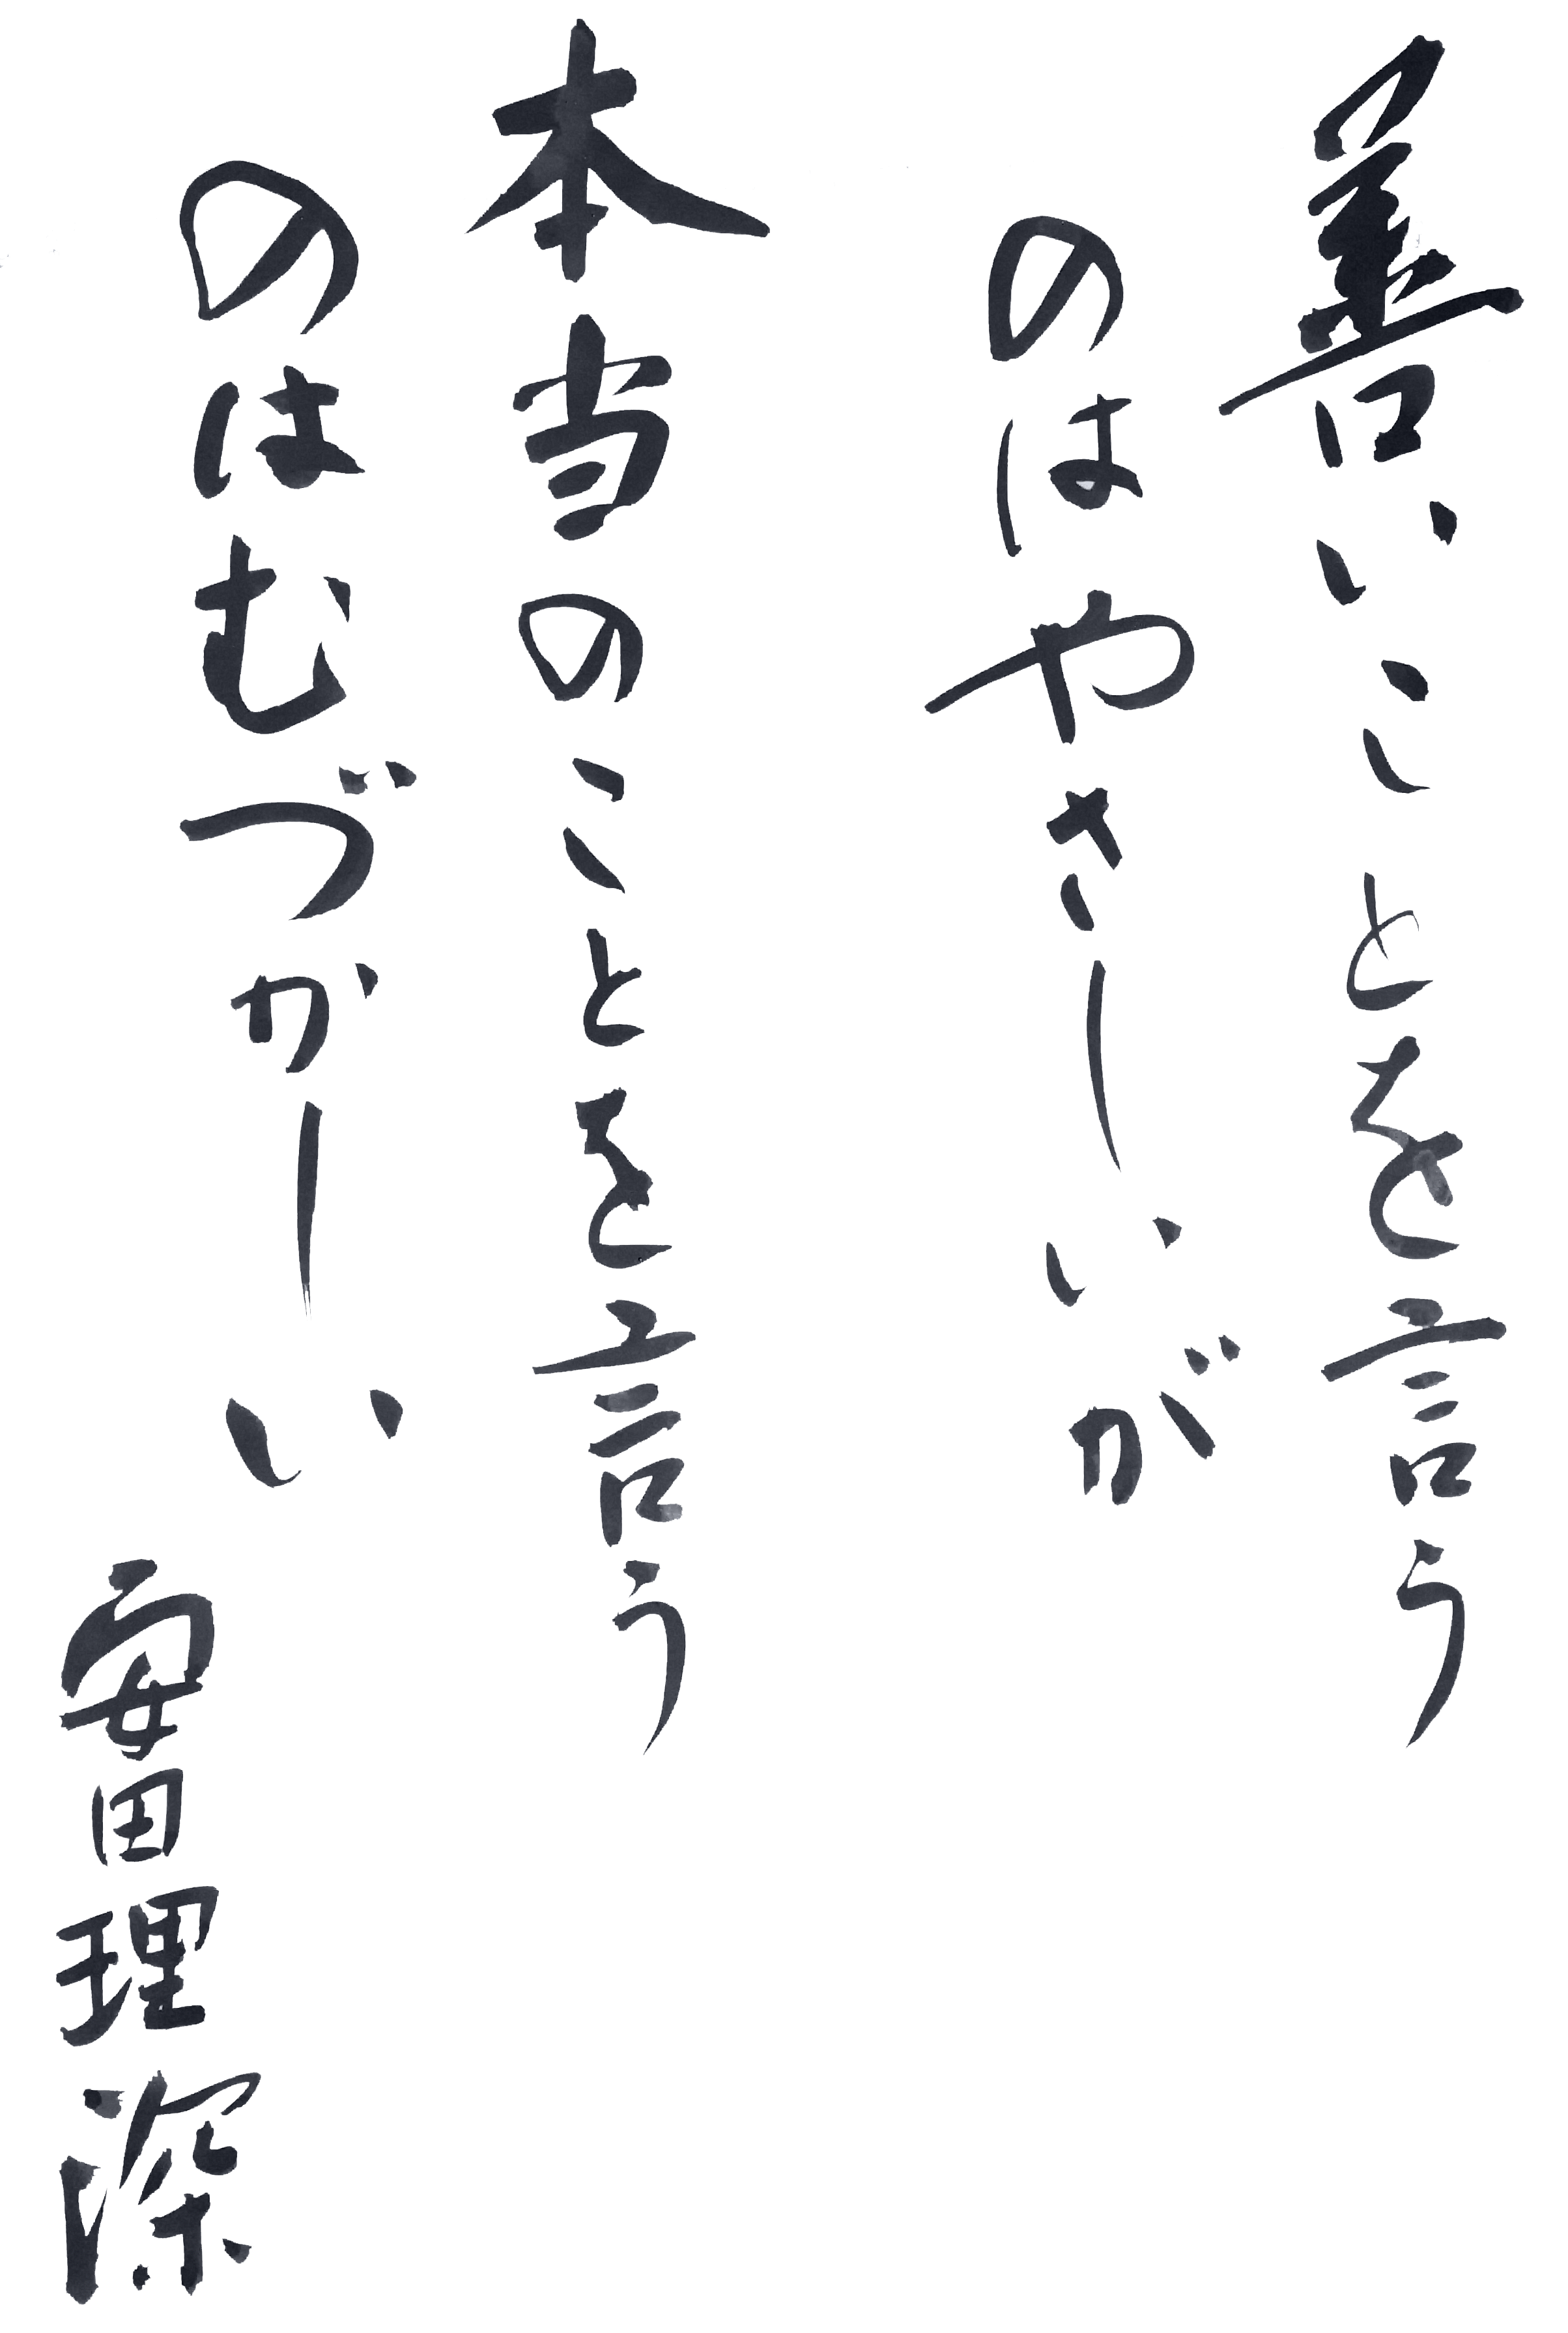 善いことを言う
のはやさしいが
本当のことを言う
のはむづかしい
安田理深